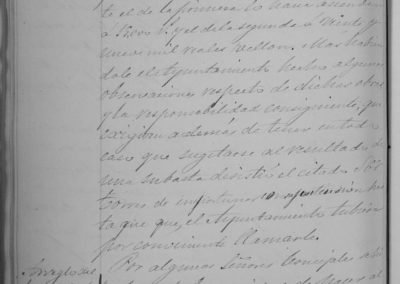 te el de la primera lo hace ascender
á y el de la segunda á veinte y
nueve mil reales vellon. Mas habien
dole el Ayuntamiento hecho algunas
observaciones respecto de dichas obras
y la responsabilidad consiguiente, que
exigirá además de tener en todo
caso que sugetarse al resultado de
una subasta desistió el citado Sor
Torres de
ta que que, el Ayuntamiento tubiera
por conveniente llamarle.
Arreglo de
Por algunos Señores Concejales